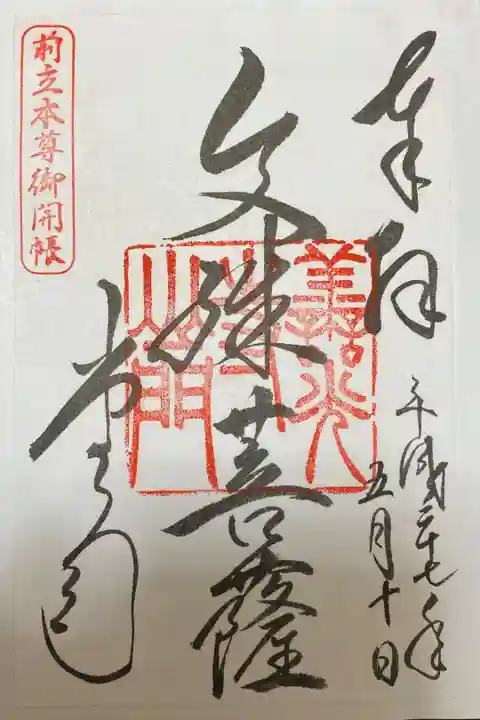 奉拝
平成二十七年
五月十日
文殊菩薩
善光
寺
山門
前立本尊御開帳